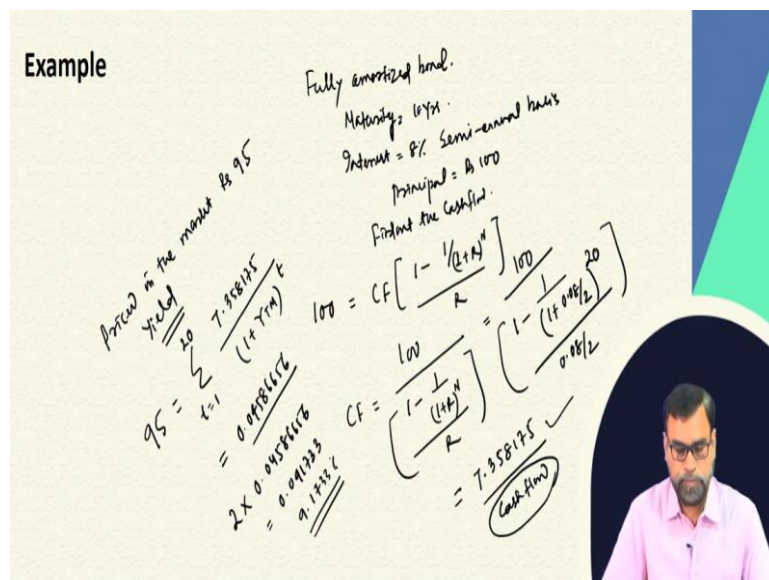 Example
Fully amortized bond.
Maturity = 10 Yrs.
Interest = 8% Semi-annual basis
Principal = Rs 100
Find out the Cashflow.
100 = CF [ (1 - 1/(1+R)^N) / R ]
CF = 100 / ( (1 - 1/(1+R)^N) / R ) = 100 / ( (1 - 1/(1+0.08/2)^20) / 0.08/2 )
= 7.358175 ✓
Cashflow
Priced in the market Rs 95
Yield
95 = 20 Σ t=1 7.358175 / (1+YTM)^t
= 0.04586656
2 × 0.04586656
= 0.091733
9.1733%